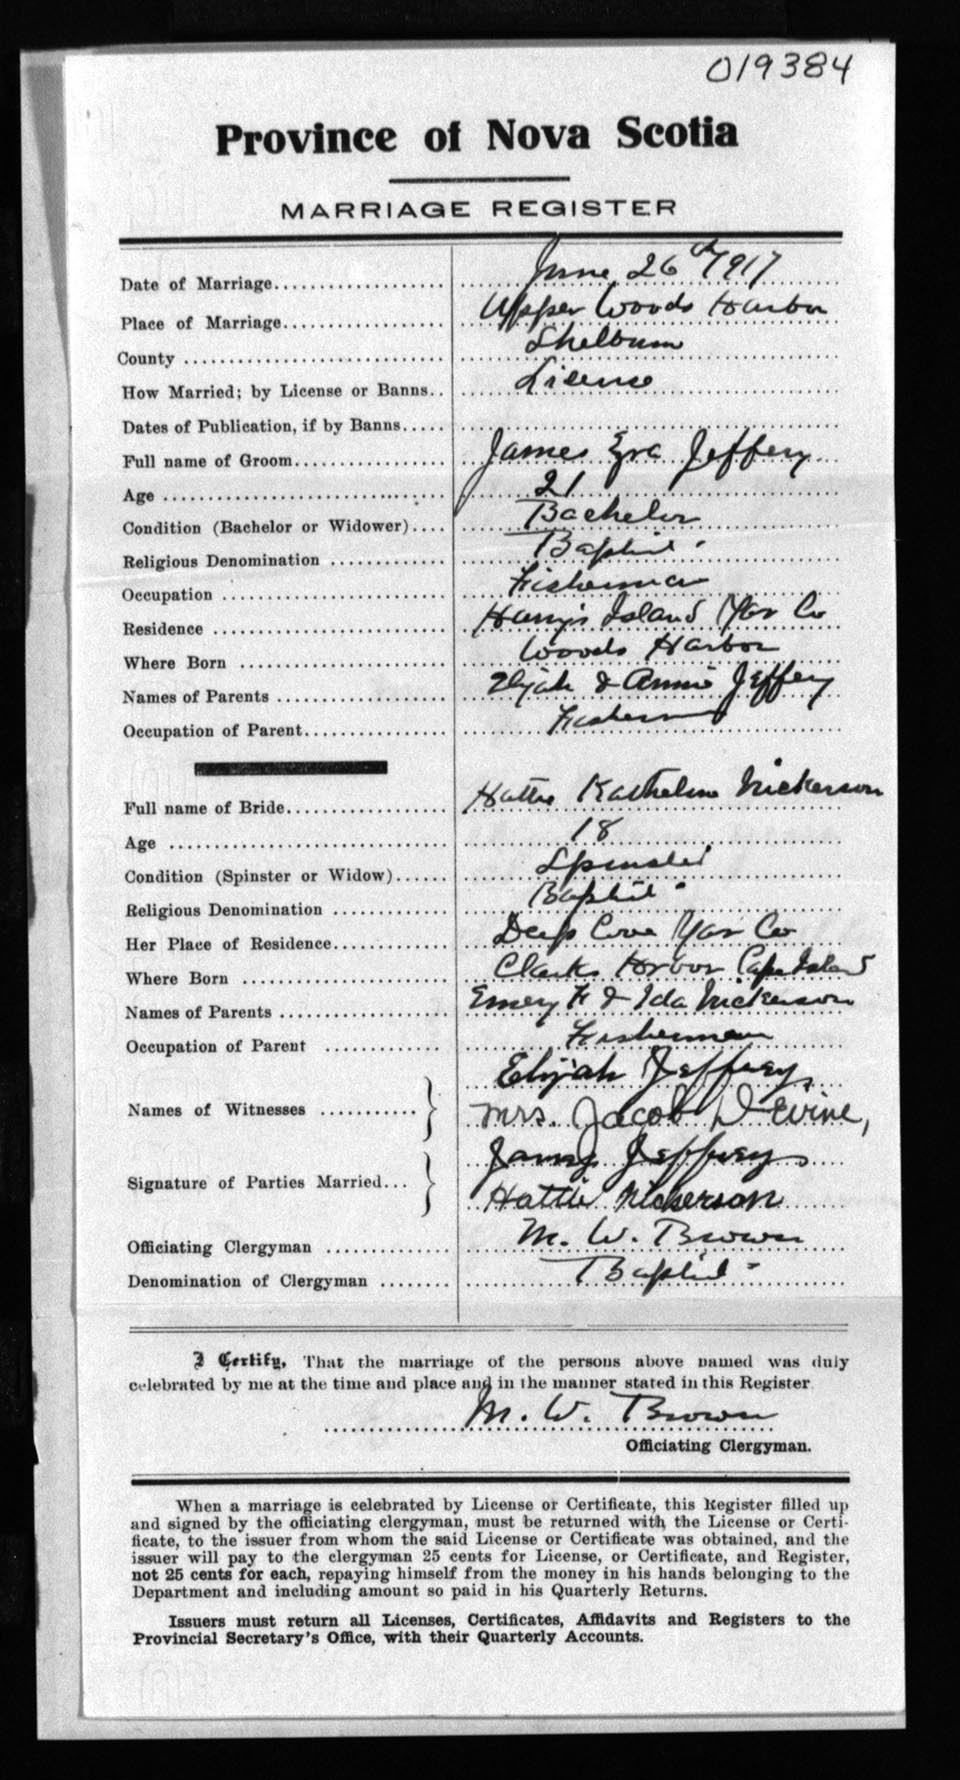 019384
Province of Nova Scotia
MARRIAGE REGISTER
Date of Marriage.................... June 26th 1917
Place of Marriage.................. Upper Woods Harbor
County ............................. Shelburne
How Married; by License or Banns.. License
Dates of Publication, if by Banns.....
Full name of Groom................. James Ezra Jeffery
Age ................................ 21
Condition (Bachelor or Widower).... Bachelor
Religious Denomination ............. Baptist
Occupation ......................... Fisherman
Residence .......................... Island Yar Co
Where Born ......................... Woods Harbor
Names of Parents ................... Elijah & Annie Jeffery
Occupation of Parent................ Fisherman
Full name of Bride.................. Hattie Katheline Nickerson
Age ................................ 18
Condition (Spinster or Widow)...... Spinster
Religious Denomination ............. Baptist
Her Place of Residence.............. Deep Cove Yar Co
Where Born ......................... Clarks Harbor Cape Island
Names of Parents ................... Emery F & Ida Nickerson
Occupation of Parent ............. Fisherman
Elijah Jeffrey
Names of Witnesses ...........
Mrs. Jacob Devine,
James Jeffrey
Signature of Parties Married...
Hattie Nickerson
Officiating Clergyman ............. M. W. Brown
Denomination of Clergyman ........ Baptist
I Certify, That the marriage of the persons above named was duly
celebrated by me at the time and place and in the manner stated in this Register
M. W. Brown
Officiating Clergyman.
When a marriage is celebrated by License or Certificate, this Register filled up
and signed by the officiating clergyman, must be returned with the License or Certi-
ficate, to the issuer from whom the said License or Certificate was obtained, and the
issuer will pay to the clergyman 25 cents for License, or Certificate, and Register,
not 25 cents for each, repaying himself from the money in his hands belonging to the
Department and including amount so paid in his Quarterly Returns.
Issuers must return all Licenses, Certificates, Affidavits and Registers to the
Provincial Secretary's Office, with their Quarterly Accounts.